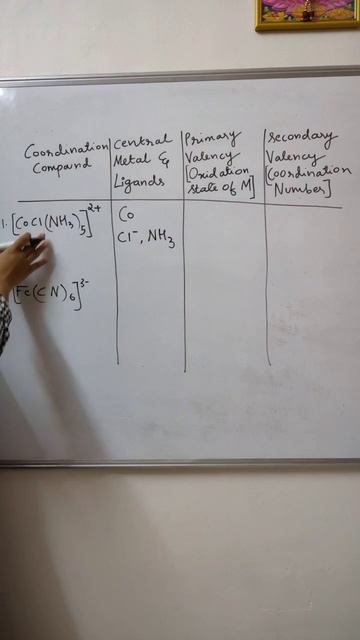 Coordination
Compand
Central
Metal &
Ligands
Primary
Valency
[Oxidation
state of M]
secondary
Valency
[Coordination
Number]
1. [CoCl(NH₃)₅]²⁺
Co
Cl⁻, NH₃
[Fe(CN)₆]³⁻